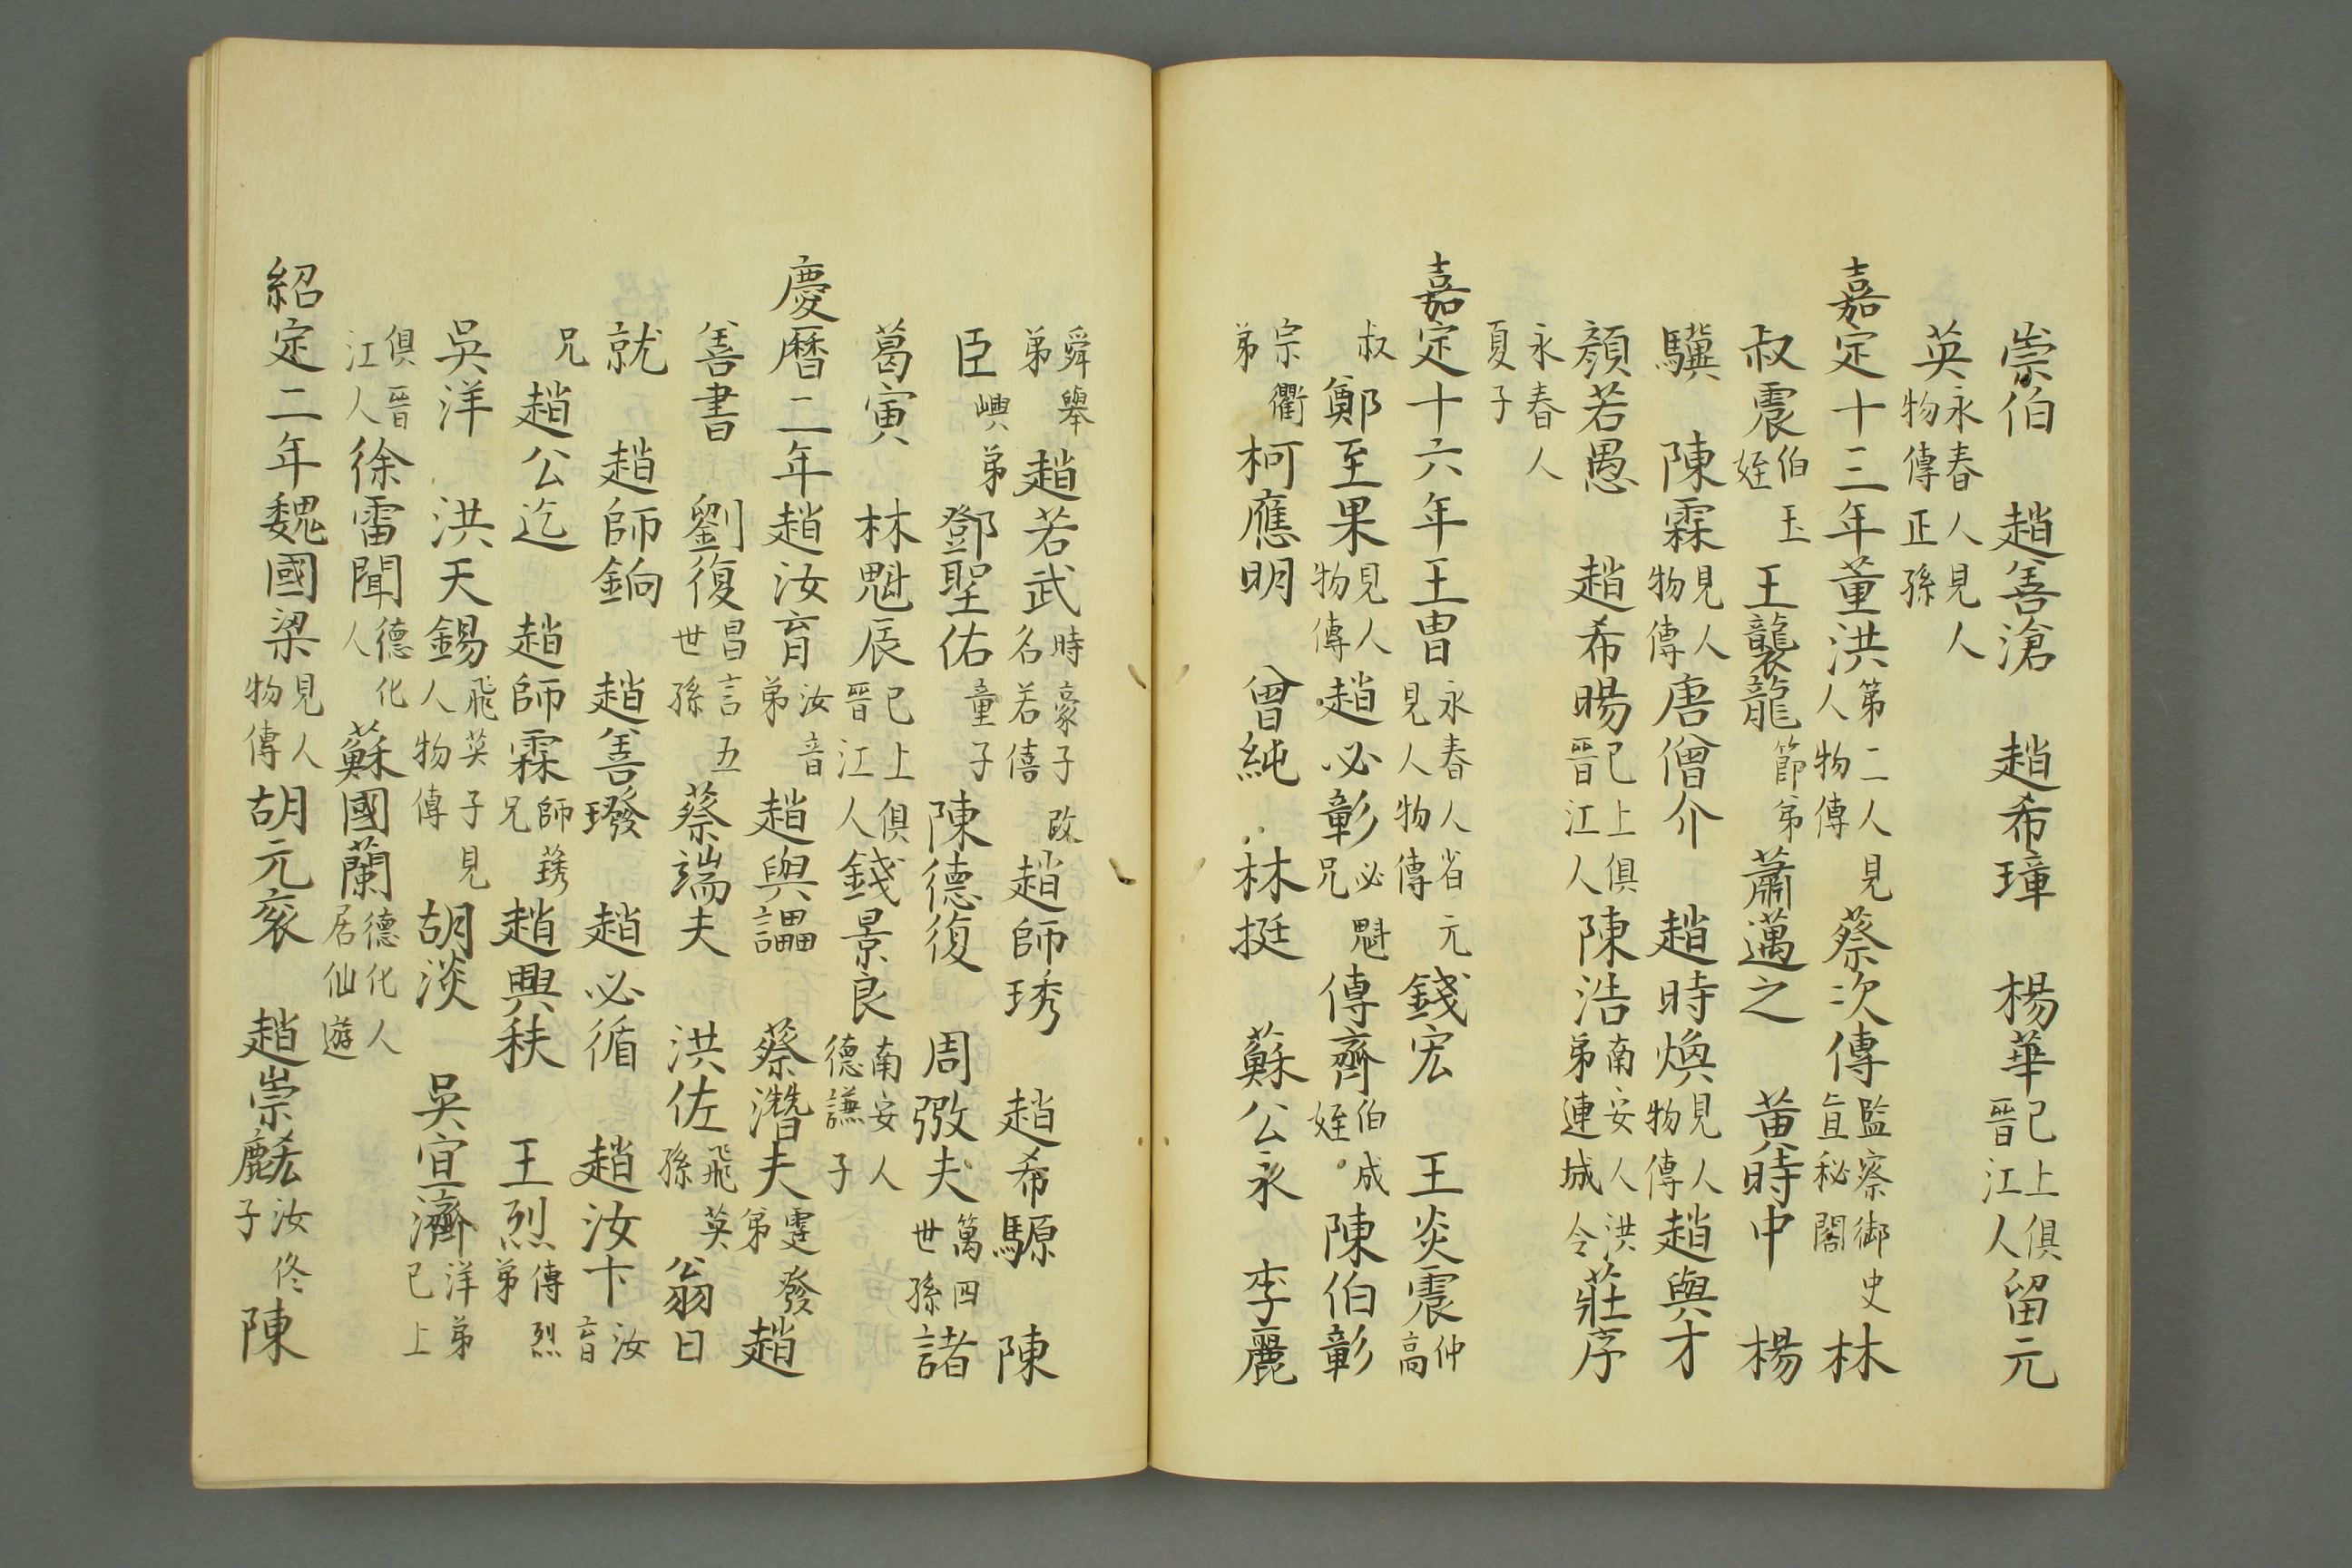 崇伯　趙善滄　趙希璋　楊華已上俱晉江人留元
英永春人見人物傳正孫
嘉定十三年董洪第二人見人物傳蔡次傳監察御史直秘閣林
叔震伯玉姪王襲龍節弟蕭邁之　黃時中　楊
驥　陳霖見人物傳唐僧介　趙時煥見人物傳趙與才
顏若愚　趙希暘已上俱晉江人陳浩南安人洪弟連城令莊序
永春人夏子
嘉定十六年王冑永春人省元見人物傳錢宏　王炎震仲高
叔鄭至果見人物傳趙必彰必魁兄傅齊伯成姪陳伯彰
宗衢弟柯應明　曾純　林挺　蘇公永　李麗
舜舉弟趙若武時豪子改名若僖趙師琇　趙希騵　陳
臣㠘弟鄧聖佑童子陳德復　周弢夫萬四世孫諸
葛寅　林魁辰已上俱晉江人錢景良南安人德謙子
慶曆二年趙汝育汝音弟趙與讄　蔡濳夫霆發弟趙
善書　劉復昌言五世孫蔡端夫　洪佐飛英孫翁日
就　趙師銄　趙善璒　趙必循　趙汝卞汝育
兄趙公迄　趙師霖師琇兄趙興秩　王烈傳烈弟
吳洋　洪天錫飛英子見人物傳胡淡　吳宜濟洋弟已上
俱晉江人徐雷聞德化人蘇國蘭德化人居仙遊
紹定二年魏國梁見人物傳胡元衮　趙崇䴡汝佟子陳